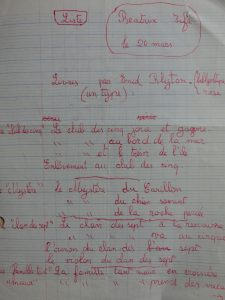 Liste
Béatrix
le 26 mars
Livres par Enid Blyton (bibliothèque
(un type) rose
Le club des cinq joue et gagne
" " au bord de la mer
" " et le trésor de l'île
Enlèvement au club des cinq
le Mystère du Carillon
" du chien savant
" de la roche percée
"clan des sept" le clan des sept à la rescousse
" " " va au cirque
L'avion du clan des sept
le violon du clan des sept
La famille tant mieux en croisière
" " prend des vaca